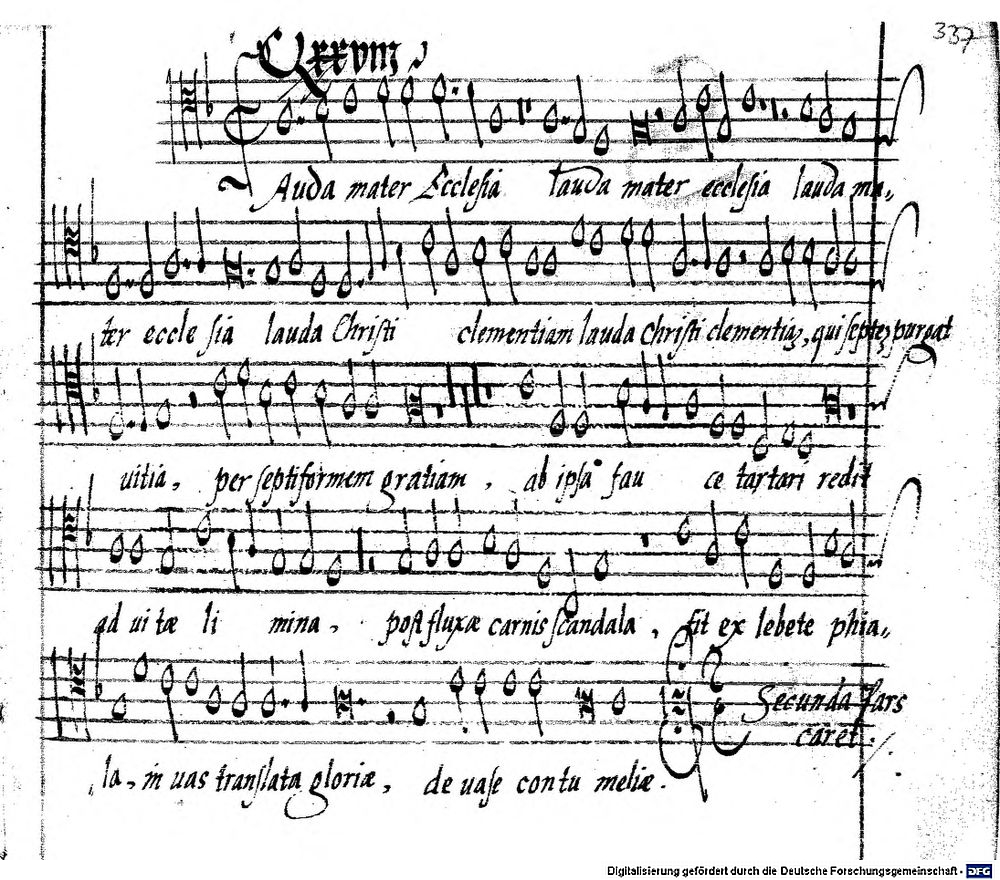 337
Qxxviii
Auda mater Ecclesia lauda mater ecclesia lauda ma„
ter eccle sia lauda Christi clementiam lauda Christi clementiã, qui septẽ purgat
vitia, per septiformem gratiam, ab ipsa fau ce tartari redit
ad vi tæ li mina, post fluxæ carnis scandala, fit ex lebete phia„
Secunda Pars
caret.
la, in vas translata gloriæ, de vase contu meliæ.
Digitalisierung gefördert durch die Deutsche Forschungsgemeinschaft - DFG